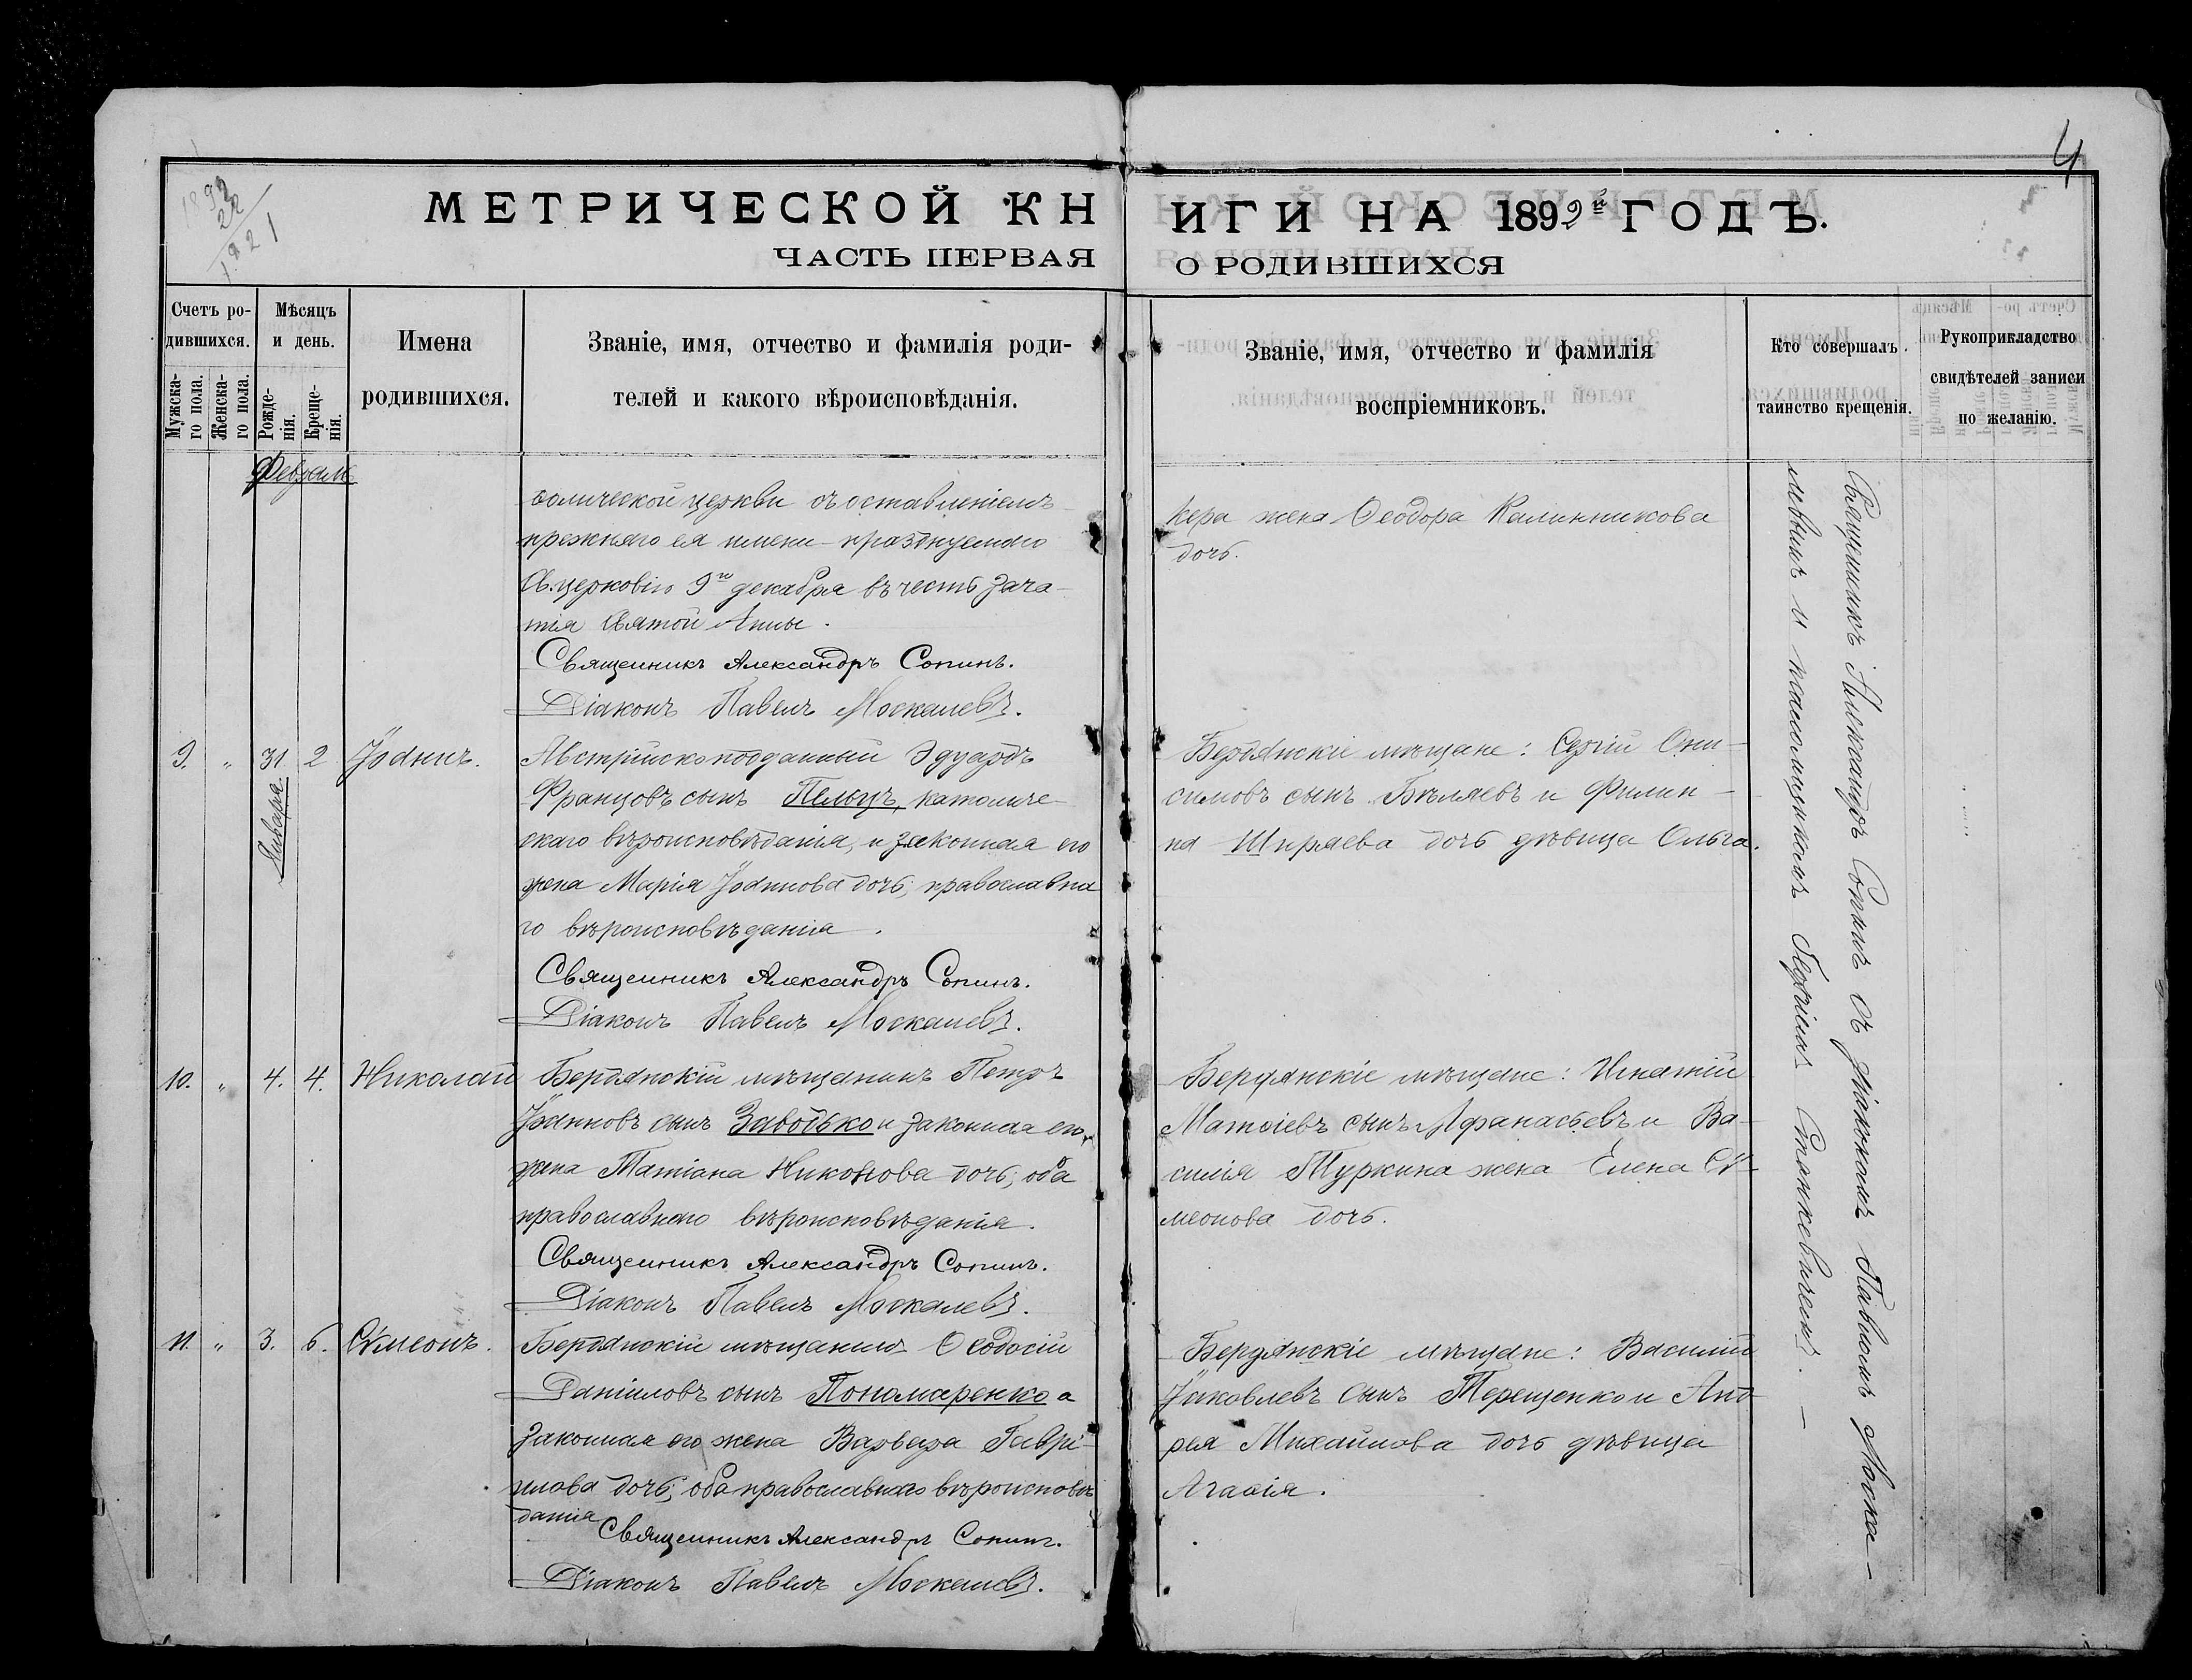 4
1892
22
1821
МЕТРИЧЕСКОЙ КН
ИГИ НА 1892й ГОДЪ.
ЧАСТЬ ПЕРВАЯ
О РОДИВШИХСЯ
Счетъ ро-
дившихся.
Мужска-
го пола.
Женска-
го пола.
Мѣсяцъ
и день.
Рожде-
нія.
Креще-
нія.
Имена
родившихся.
Званіе, имя, отчество и фамилія роди-
телей и какого вѣроисповѣданія.
Званіе, имя, отчество и фамилія
воспріемниковъ.
Кто совершалъ
таинство крещенія.
Рукоприкладство
свидѣтелей записи
по желанію.
Февраль
толической церкви съ оставленіемъ
прежняго ея имени празднуемаго
Св. церковію 9го декабря въ честь Зача-
тія Святой Анны.
Священникъ Александръ Сопинъ.
Діаконъ Павелъ Москалевъ.
кера жена Ѳеодора Калинникова
дочь.
9. " 31 2 Іоаннъ.
Января
Австрійскоподданный Эдуардъ
Францовъ сынъ Пельцъ, католиче-
скаго вѣроисповѣданія, и законная его
жена Марія Іоаннова дочь; православна
го вѣроисповѣданія.
Священникъ Александръ Сопинъ.
Діаконъ Павелъ Москалевъ.
Бердянскіе мѣщане: Сергій Они-
симовъ сынъ Бѣляевъ и Филип-
па Ширяева дочь дѣвица Ольга.
10. " 4. 4. Николай
Бердянскій мѣщанинъ Петръ
Іоанновъ сынъ Заводько и законная его
жена Татіана Никонова дочь; оба
православнаго вѣроисповѣданія.
Священникъ Александръ Сопинъ.
Діаконъ Павелъ Москалевъ.
Бердянскіе мѣщане: Игнатій
Матѳіевъ сынъ Афанасьевъ и Ва-
силія Туркина жена Елена Сѵ-
меонова дочь.
11. " 3. 6. Сѵмеонъ.
Бердянскій мѣщанинъ Ѳеодосій
Даніиловъ сынъ Пономаренко а
законная его жена Варвара Гаврі-
илова дочь; оба православнаго вѣроисповѣ
данія
Священникъ Александръ Сопинъ.
Діаконъ Павелъ Москалевъ.
Бердянскіе мѣщане: Василій
Іаковлевъ сынъ Терещенко и Анд
рея Михайлова дочь дѣвица
Агаѳія.
Священникъ Александръ Сопинъ съ діакономъ Павломъ Моска-
левымъ и псаломщикомъ Георгіемъ Станкевичемъ. -